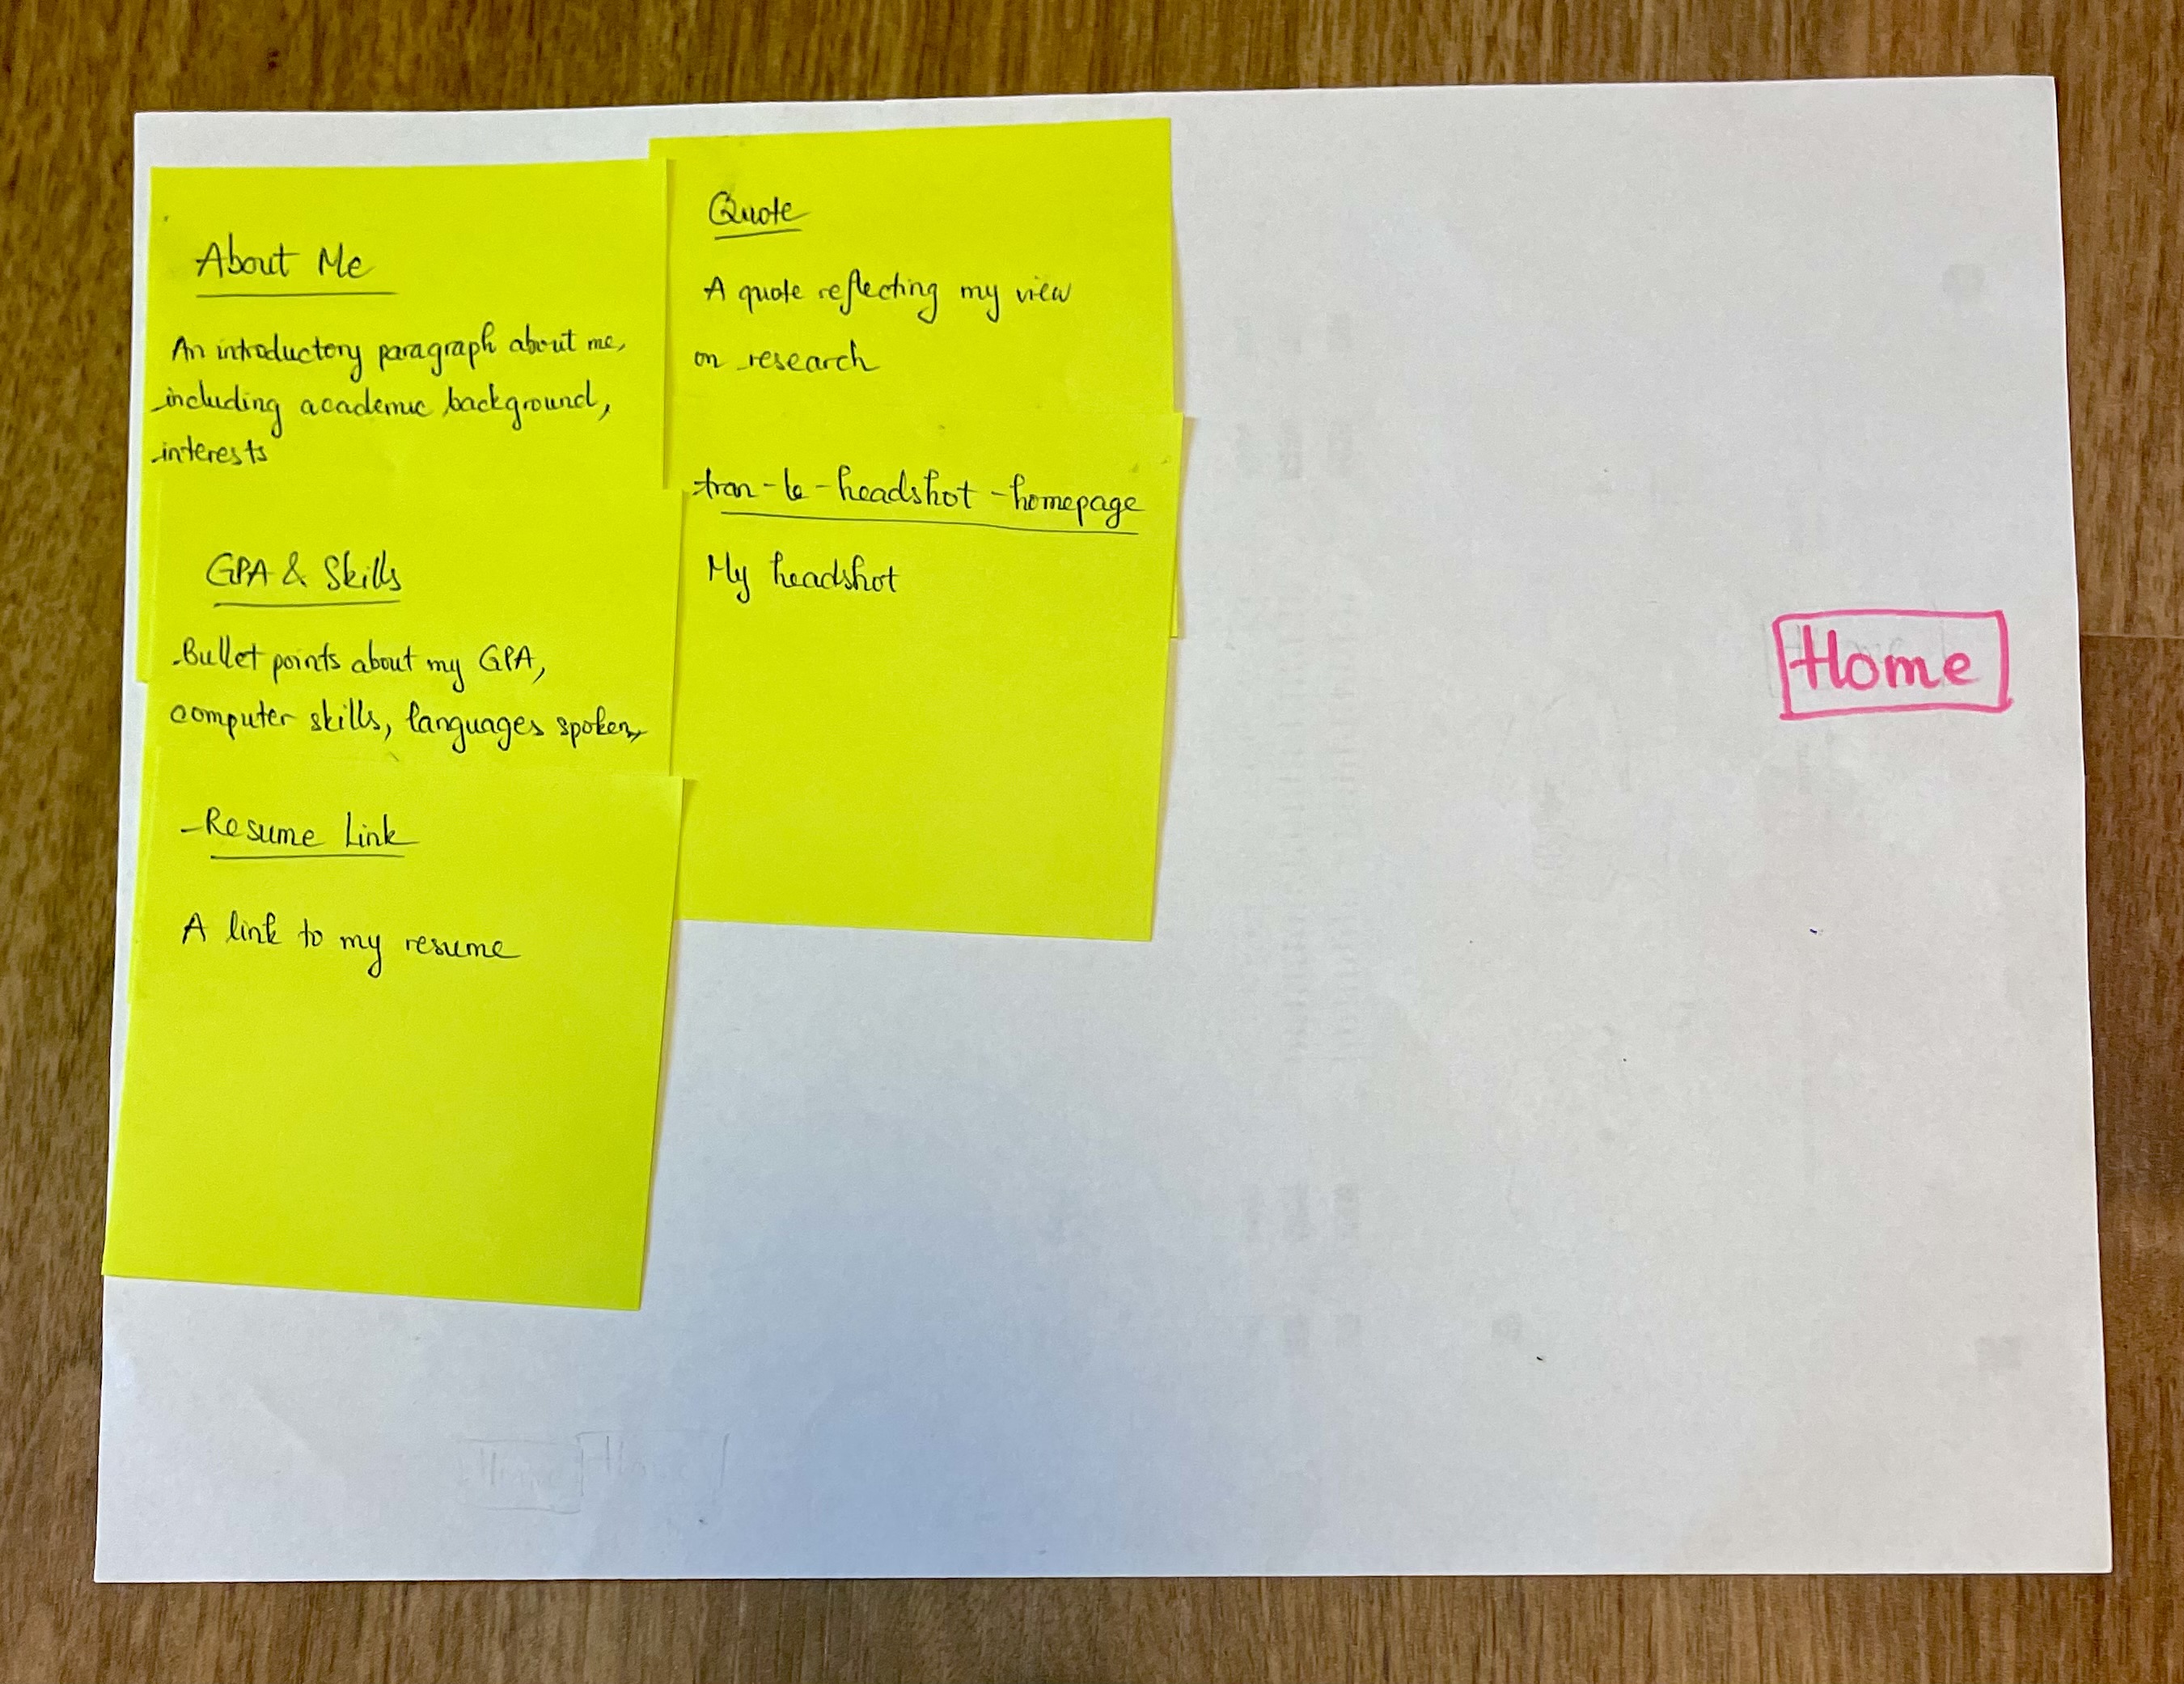 About Me
An introductory paragraph about me,
including academic background,
interests
GPA & Skills
Bullet points about my GPA,
computer skills, languages spoken,
Resume Link
A link to my resume
Quote
A quote reflecting my view
on research
tran-le-headshot-homepage
My headshot
Home